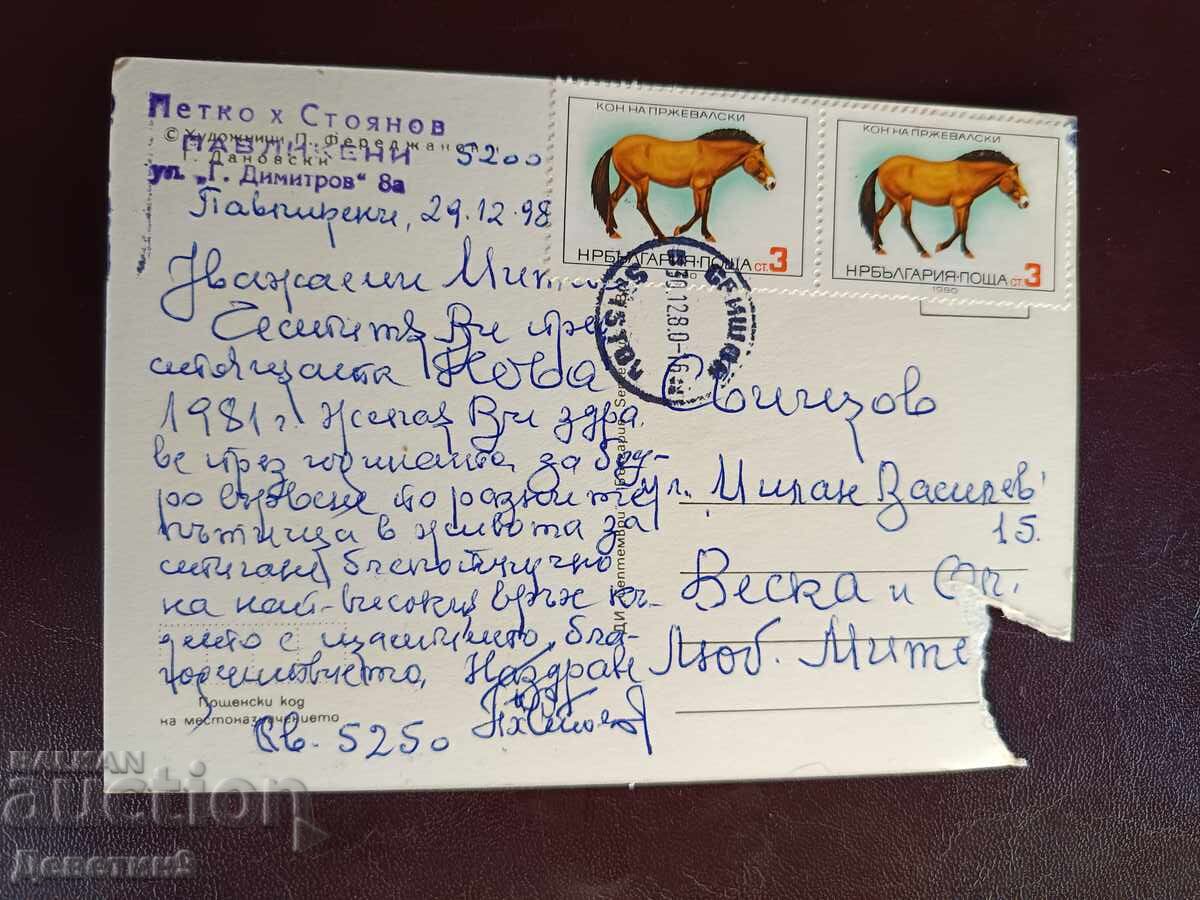 Петко х Стоянов
© Художници П. Фереджанов,
Г. Дановски
ПАВЛИКЕНИ 5200
ул. „Г. Димитров" 8а
Павликени, 29.12.98
Уважаеми
Честитя Ви пред
стоящата Нова
1981 г. Желая Ви здра
ве през годината, за бод-
ро вървене по разните
пътища в живота за
стигане благополучно
на най-високия връх къ-
дето е щастието, бла-
годенствието, Наздраве
Пощенски код
на местоназначението
Св. 5250
КОН НА ПРЖЕВАЛСКИ
НРБЪЛГАРИЯ·ПОЩА СТ. 3
1980
КОН НА ПРЖЕВАЛСКИ
НРБЪЛГАРИЯ·ПОЩА СТ. 3
1980
СВИЩОВ
SVISTOV
30.12.8.0-16
Свищов
ул. „Милан Василев"
15.
Веска и
Люб. Мите
BALKAN
auction
Деветин9